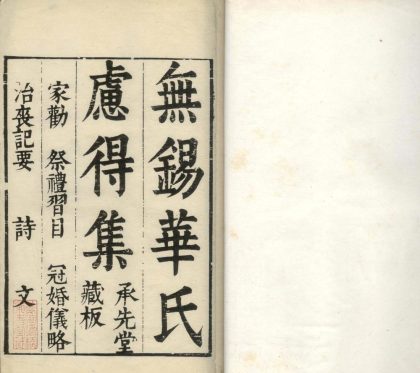 無錫華氏
慮得集
承先堂
藏板
家勸　祭禮習目　冠婚儀略
治喪記要　詩　文